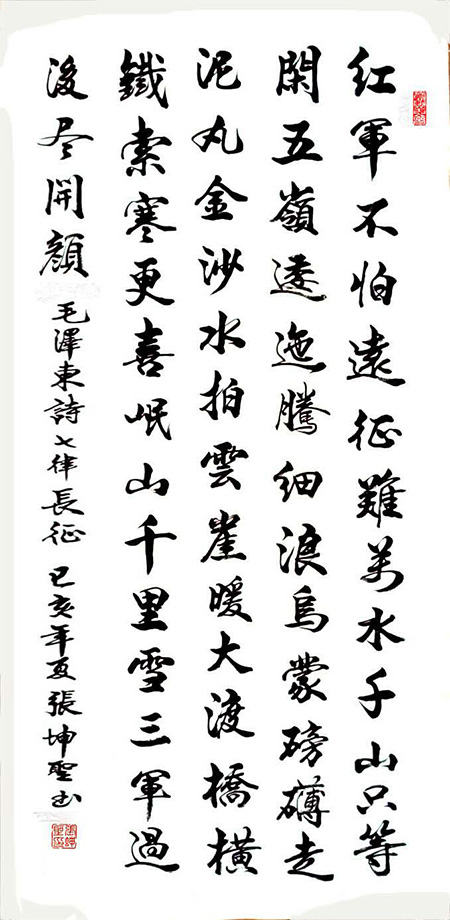 红軍不怕遠征難萬水千山只等
閑五嶺逶迤騰细浪烏蒙磅礴走
泥丸金沙水拍雲崖暖大渡橋橫
鐵索寒更喜岷山千里雪三軍過
後尽開顏 毛澤東詩七律長征 己亥年夏張坤聖书